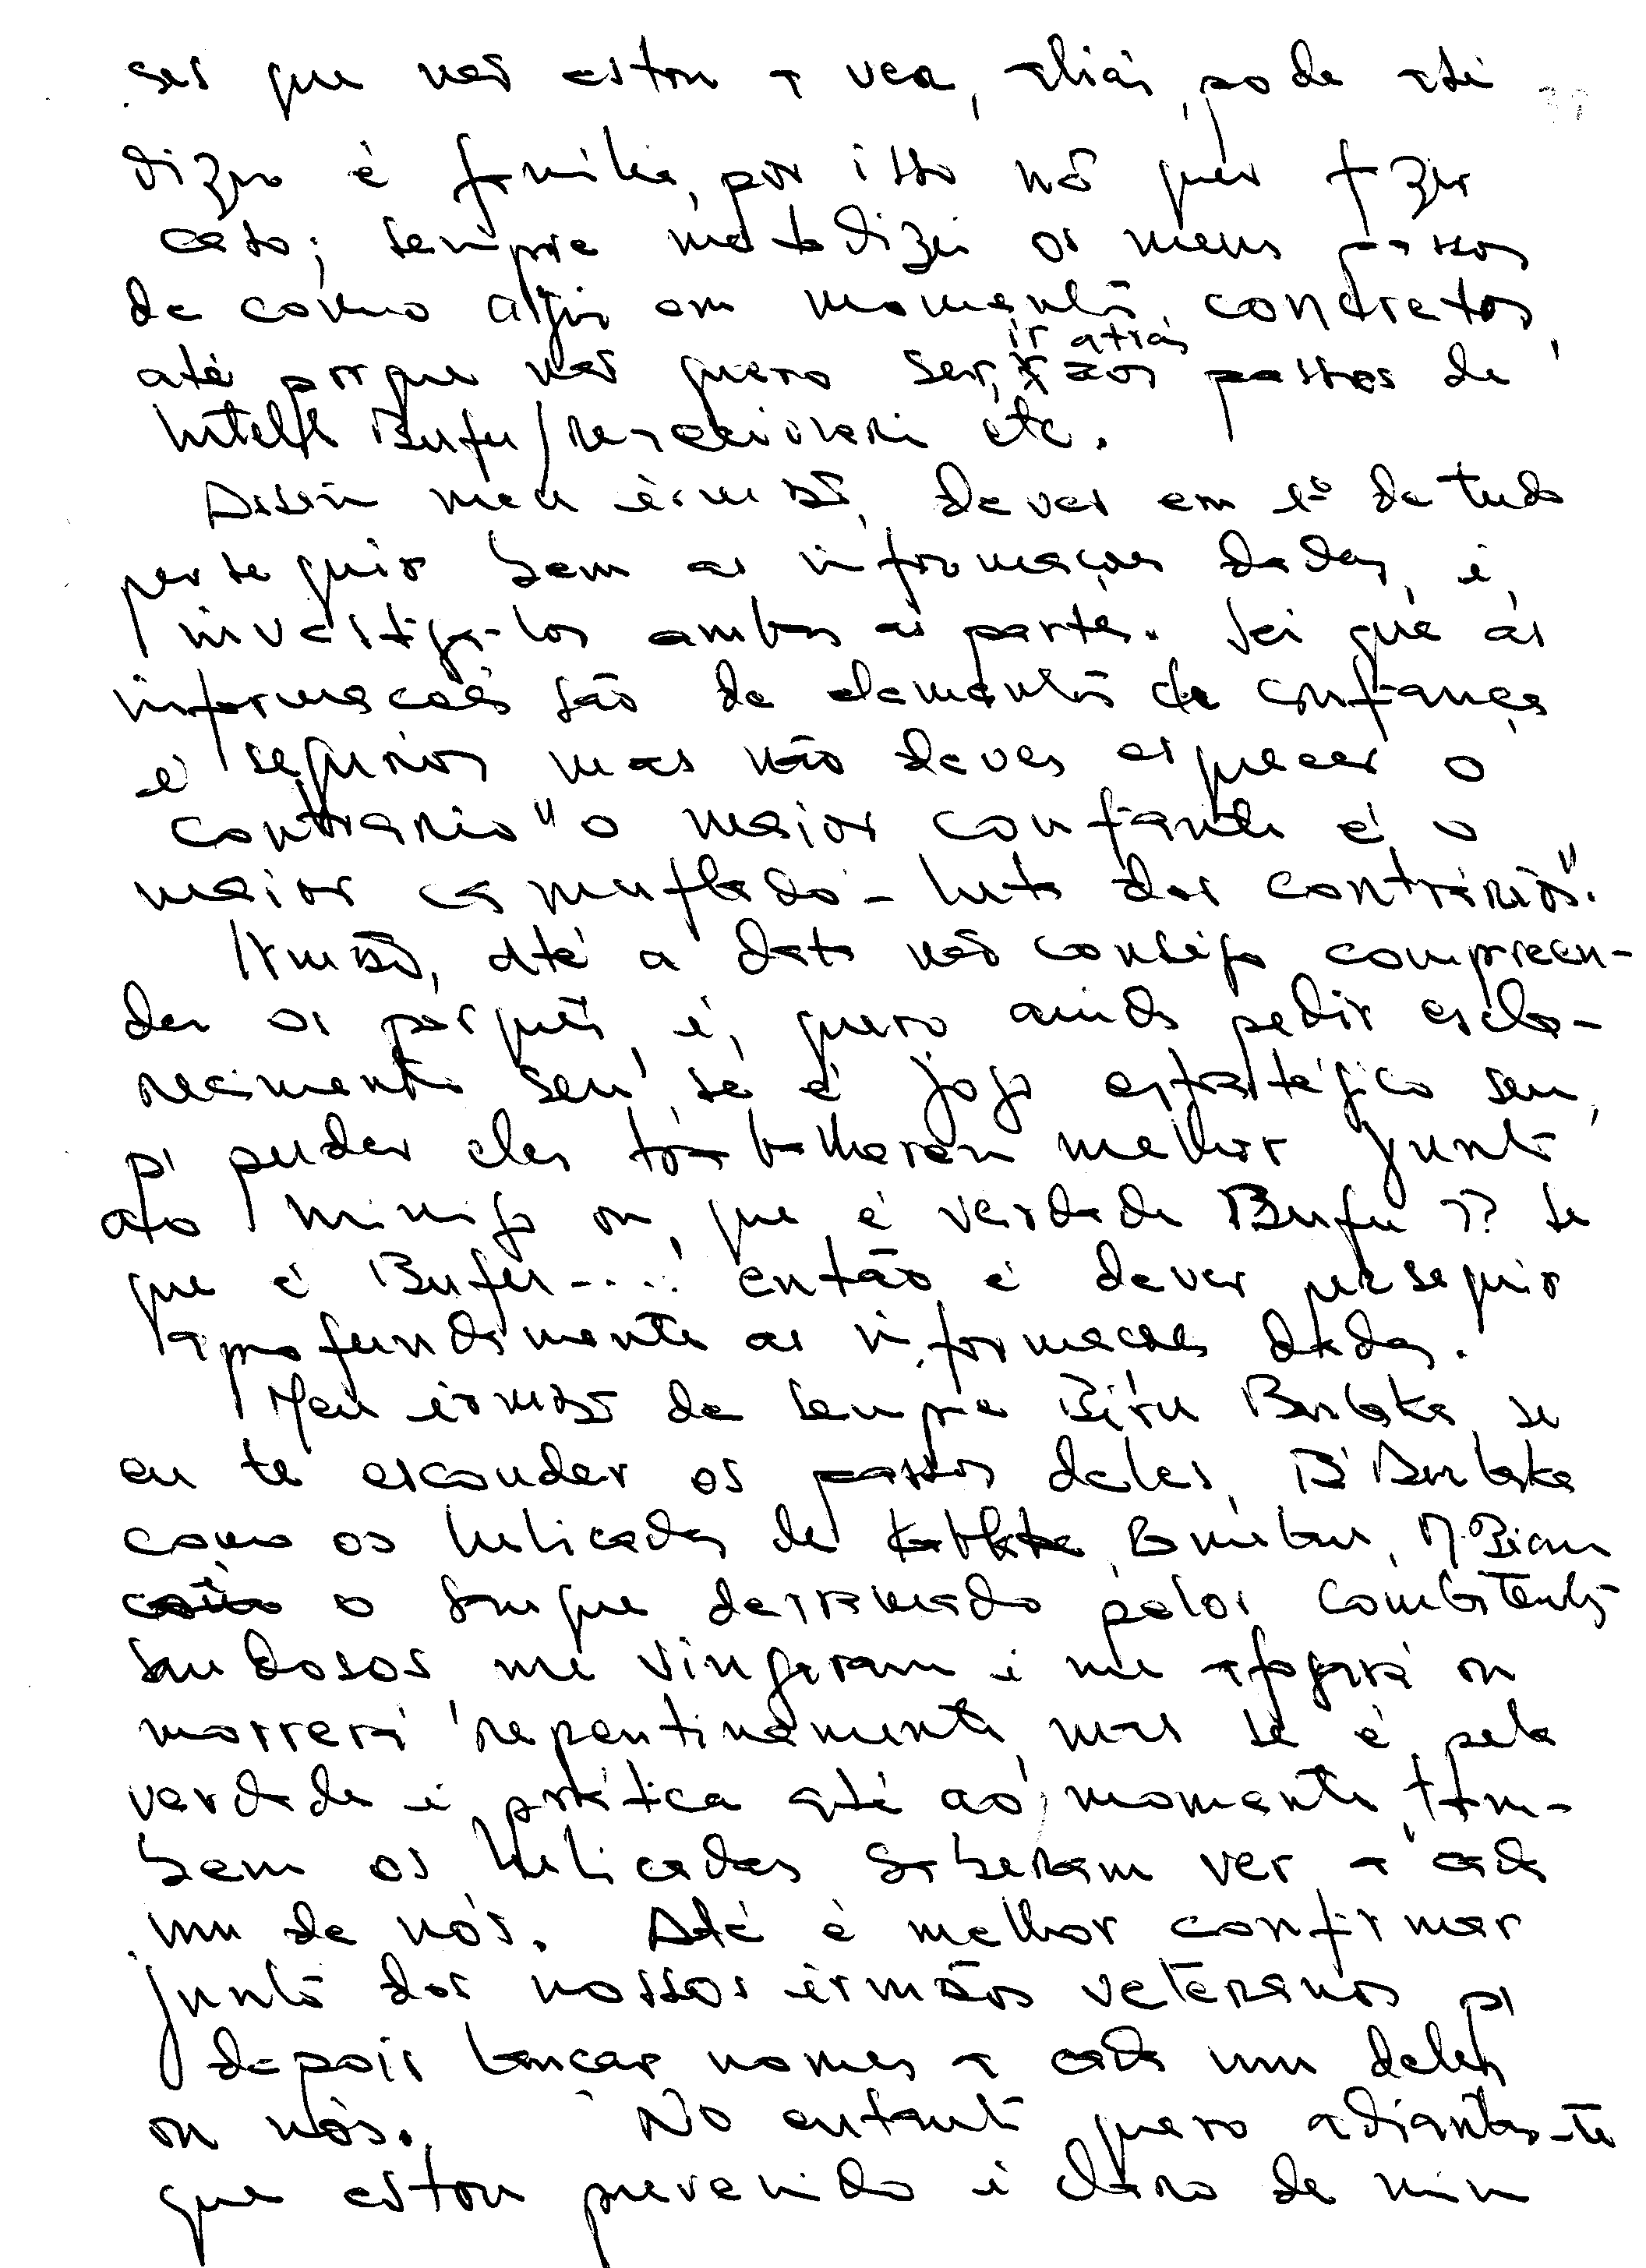 ses que não estou a ver, aliás, pode até
dizer é família, por isso não quer fazer
caso; sempre metodizei os meus passos
de como agir em momentos concretos,
até porque não quero ser, ir atrás aos passos de
Intelf Bufu/reaccionari etc.
Assim meu írmão, dever em 1º de tudo
perseguir bem as informações dadas, é,
investigá-los ambas as partes. Sei que as
informações são de elementos de confiança
e seguros mas não deves esquecer o
contrario "o maior confiante é o
maior camuflado - luta dos contrários".
Irmão, até a data não consigo compreen-
der os porquês, é, quero ainda pedir escla-
recimento seu, se é jogo estratégico seu,
p/ puder eles trabalharem melhor junto
ao inimigo ou, que é verdade Bufu?? Se
que é Bufu-....! então é dever perseguir
aprofundamente as informações dadas.
Meu írmão de sempre Bíru Burlaka, se
eu te esconder os passos deles, B'Burlaka
como os helicadas de Bunibau, M. Biau
o sangue derramado pelos combatentes
saudosos me vingaram e me afogará ou
morrerá repentinamente, mas se é pela
verdade e prática até ao momento, tam-
bem os helicadas saberam ver a cada
um de nós. Até é melhor confirmar
junto dos nossos írmãos veteranos p/
depois lançar nomes a cada um deles
ou nós. No entanto quero adiantar-te
que estou prevenido e claro de mim